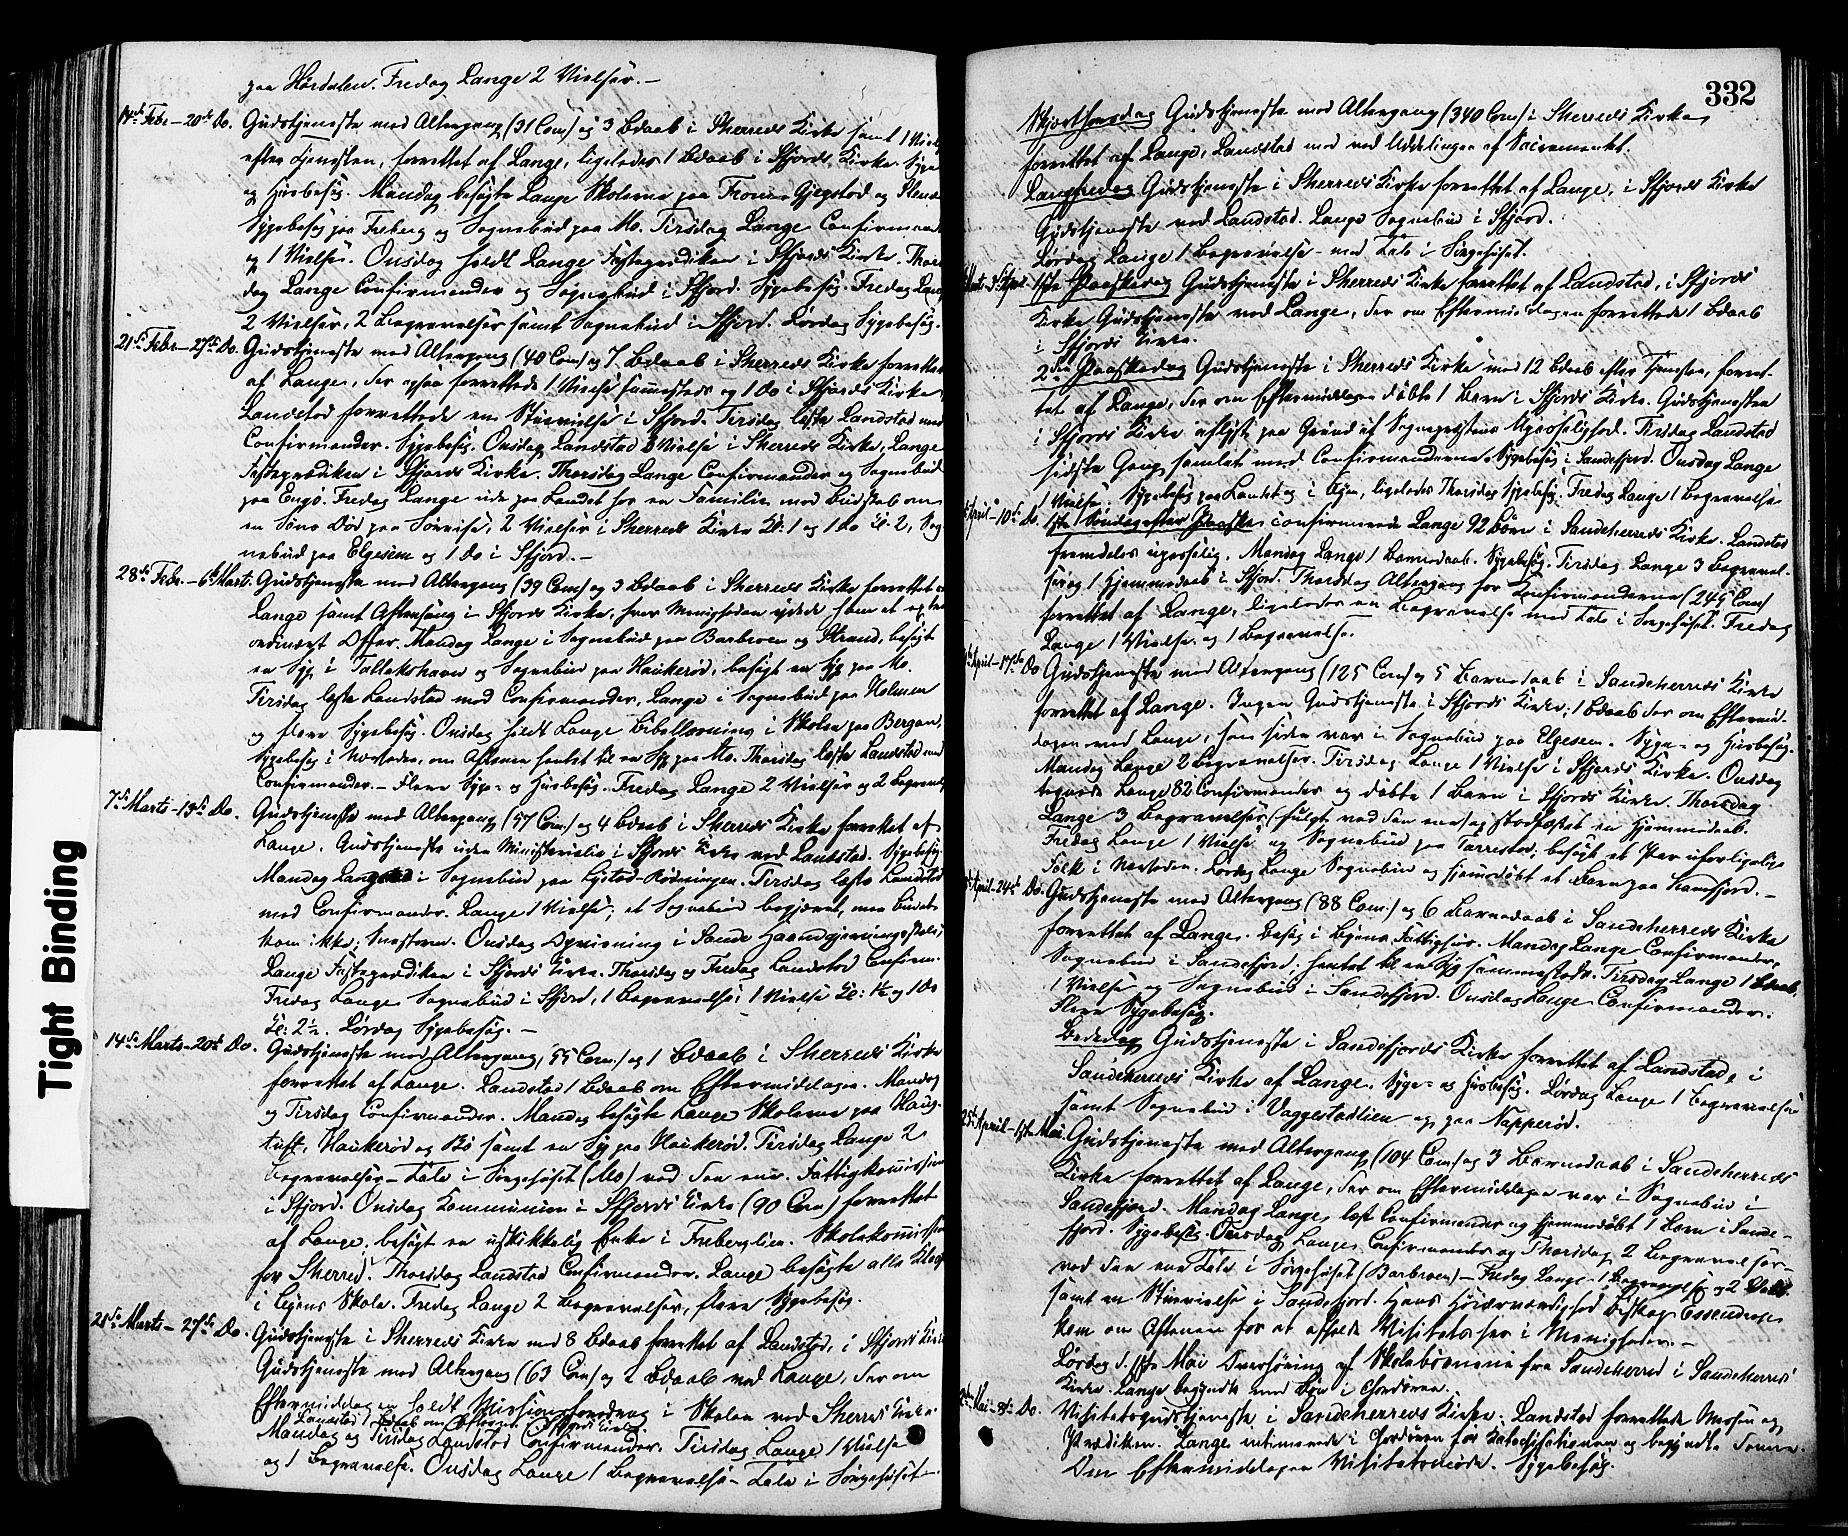 paa Hørdalen. Fredag Lange 2 Vielser.-
14de Febr-20de Do. Gudstjeneste med Altergang (31 Com) og 3 Bdaab i Sherreds Kirke samt 1 Viels
efter Tjenesten, forrettet af Lange, ligeledes 1 Bdaab i Sfjords Kirke. Syge
og Husbesøg. Mandag besøgte Lange Skolerne paa Fromn Gjegstad og
Sygebesøg paa Freberg og Sognebud paa Mo. Tirsdag Lange Confirmander
og 1 Vielse. Onsdag holdt Lange Fasteprædiken i Sfjords Kirke. Thors
dag Lange Confirmander og Sognebud i Sfjord. Sygebesøg. Fredag Lange
2 Vielser, 2 Begravelser samt Sognebud i Sfjord. Lørdag Sygebesøg.
21de Febr-27de Do. Gudstjeneste med Altergang (40 Com) og 7 Bdaab i Sherreds Kirke forrettet
af Lange, der ogsaa forrettede 1 Vielse sammesteds og 1 Do i Sfjords Kirke,
Landstad forrettede en Stuevielse i Sfjord. Tirsdag læste Landstad med
Confirmander. Sygebesøg. Onsdag Landstad Vielse i Sherreds Kirke, Lange
Fasteprædiken i Sfjords Kirke. Thorsdag Lange Confirmander og Sognebud
paa Engø. Fredag Lange ude paa Landet for en Familie med Budskab om
en Søns Død paa Sørreise, 2 Vielser i Sherreds Kirke Kl. 1 og 1 Do Kl. 2, Sog
nebud paa Elgesem og 1 Do i Sfjord.-
28de Febr.-6te Marts Gudstjeneste med Altergang (39 Com) og 3 Bdaab i Sherreds Kirke forrettet af
Lange samt Aftensang i Sfjords Kirke, hvor Menigheden ydede ham et extra
ordinært Offer. Mandag Lange i Sognebud paa Barkroen og Strand, besøgt
en Syg i Tallakshavn og Sognebud paa Haukerød, besøgt en Syg paa Mo.
Tirsdag læste Landstad med Confirmander, Lange i Sognebud paa Holmen
og flere Sygebesøg. Onsdag holdt Lange Bibellæsning i Skolen paa Bergan,
Sygebesøg i Norleden, om Aftenen hentet til en Syg paa Mo. Thorsdag læste Landstad med
Confirmander.- Flere Syge- og Husbesøg. Fredag Lange 2 Vielser og 2 Begravels
7de Marts-13de Do. Gudstjeneste med Altergang (57 Com) og 4 Bdaab i Sherreds Kirke forrettet af
Lange. Gudstjeneste uden Ministerialia i Sfjords Kirke ved Landstad. Sygebesøg.
Mandag Lange i Sognebud paa Gjestad-Rødningen. Tirsdag læste Landstad
med Confirmander. Lange 1 Vielse; et Sognebud begjæret, men Budet
kom ikke; Snestorm. Onsdag Opvisning i Sande Haandgjerningsskole;
Lange Fasteprædiken i Sfjords Kirke. Thorsdag og Fredag Landstad Confirm.
Fredag Lange Sognebud i Sfjord, 1 Begravelse, 1 Vielse Kl: 1½ og 1 Do
Kl: 2½. Lørdag Sygebesøg.-
14de Marts-20de Do. Gudstjeneste med Altergang, (55 Com.) og 1 Bdaab i Sherreds Kirke
forrettet af Lange. Landstad 1 Bdaab om Eftermiddagen. Mandag
og Tirsdag Confirmander. Mandag besøgte Lange Skolerne paa Haug-
tuft, Haukerød og Bø samt en Syg paa Haukerød. Tirsdag Lange 2
Begravelser - Tale i Sørgehuset (Mo) ved den ene. Fattigkomission
i Sfjord. Onsdag Kommunion i Sfjords Kirke (90 Com) forrettet
af Lange, besøgt en uskikkelig Enke i Freberglien. Skolekomission
for Sherred. Thorsdag Landstad Confirmander. Lange besøgte alle Klasser
i Byens Skole. Fredag Lange 2 Begravelser, flere Sygebesøg.
21de Marts-27de Do. Gudstjeneste i Sherreds Kirke med 8 Bdaab forrettet af Landstad, i Sfjords Kirke
Gudstjeneste med Altergang (63 Com) og 2 Bdaab ved Lange, der om
Eftermiddagen holdt Missionsforedrag i Skolen ved Sherreds Kirke.
Landstad 1 Bdaab om Eftermd. i Sfjords Kirke.
Mandag og Tirsdag Landstad Confirmander. Tirsdag Lange 1 Vielse
og 1 Begravelse. Onsdag Lange 1 Begravelse - Tale i Sørgehuset.-
332
Skjærthorsdag Gudstjeneste med Altergang (340 Com) i Sherreds Kirke,
forrettet af Lange, Landstad med ved Uddelingen af Sacramentet.
Langfredag Gudstjeneste i Sherreds Kirke forrettet af Lange, i Sfjords Kirke
Gudstjeneste ved Landstad. Lange Sognebud i Sfjord.
Lørdag Lange 1 Begravelse - med Tale i Sørgehuset.
Marts-3die April 1ste Paaskedag Gudstjeneste i Sherreds Kirke forrettet af Landstad, i Sfjords
Kirke Gudstjeneste ved Lange, der om Eftermiddagen forrettede 1 Bdaab
i Sfjords Kirke.
2den Paaskedag Gudstjeneste i Sherreds Kirke med 12 Bdaab efter Tjenesten, forret-
tet af Lange, der om Eftermiddagen døbte 1 Barn i Sfjords Kirke. Gudstjenesten
i Sfjords Kirke aflyst paa Grund af Sognepræstens Upasselighed. Tirsdag Landstad
sidste Gang samlet med Confirmanderne, Sygebesøg i Sandefjord. Onsdag Lange
1 Vielse. Sygebesøg paa Landet og i Byen, ligeledes Thorsdag Sygebesøg. Fredag Lange 1 Begravelse.
April-10de Do. 1ste Søndag efter Paaske confirmerede Lange 92 Børn i Sandeherreds Kirke. Landstad
fremdeles upasselig. Mandag Lange 1 Barnedaab. Sygebesøg. Tirsdag Lange 3 Begravel-
ser og 1 Hjemmedaab i Sfjord. Thorsdag Altergang for Konfirmanderne (245 Com)
forrettet af Lange, ligeledes en Begravelse med Tale i Sørgehuset. Fredag
Lange 1 Vielse og 1 Begravelse.
April-17de Do Gudstjeneste med Altergang (125 Com) og 5 Barnedaab i Sandeherreds Kirke
forrettet af Lange. Ingen Gudstjeneste i Sfjords Kirke; 1 Bdaab der om Eftermid-
dagen ved Lange, som siden var i Sognebud paa Elgesem. Syge- og Husbesøg.
Mandag Lange 2 Begravelser. Tirsdag Lange 1 Vielse i Sfjords Kirke. Onsdag
Lange 82 Confirmander og døbte 1 Barn i Sfjords Kirke. Thorsdag
Lange 3 Begravelser (fulgt ved den ene) og stadfæstet en Hjemmedaab.
Fredag Lange 1 Vielse og Sognebud paa Tarrestad, besøgt et Par uforligelige
Folk i Norleden. Lørdag Lange Sognebud og hjemmedøbt et Barn paa Kamfjord.-
April-24de Do. Gudstjeneste med Altergang (88 Com.) og 6 Barnedaab i Sandeherreds Kirke
forrettet af Lange. Besøg i Byens Fattighus. Mandag Lange Confirmander,
Sognebud i Sandefjord, hentet til en Syg sammesteds. Tirsdag Lange 1 Bdaab,
1 Vielse og Sognebud i Sandefjord. Onsdag Lange Confirmander.
Flere Sygebesøg.
Bededag Gudstjeneste i Sandefjords Kirke forrettet af Landstad, i
Sandeherreds Kirke af Lange. Syge- og Husbesøg. Lørdag Lange 1 Begravelse
samt Sognebud i Vaggestadlien og paa Napperød.
25de April-1ste Mai Gudstjeneste med Altergang (104 Com) og 3 Barnedaab i Sandeherreds
Kirke forrettet af Lange, der om Eftermiddagen var i Sognebud i
Sandefjord. Mandag Lange læst Confirmander og hjemmedøbt 1 Barn i Sande-
fjord. Sygebesøg. Onsdag Lange Confirmander og Thorsdag 2 Begravelser-
ved den ene Tale i Sørgehuset (Barkroen) - Fredag Lange 1 Begravelse og 2 Vielser
samt en Stuevielse i Sandefjord. Hans Høiærværdighed Biskop Essendrop
kom om Aftenen for at afholde Visitatser i Menigheden.-
Lørdag d. 1ste Mai Overhøring af Skolebørnene fra Sandeherred i Sandeherreds
Kirke. Lange begyndte med Bøn i Chordøren.
2den Mai-8de Do. Visitatsgudstjeneste i Sandeherreds Kirke. Landstad forrettede Messen og
Prædiken. Lange intimerede i Chordøren før Katechisationen og begyndte
Om Eftermiddagen Visitatsmøde. Sygebesøg.
Tight Binding